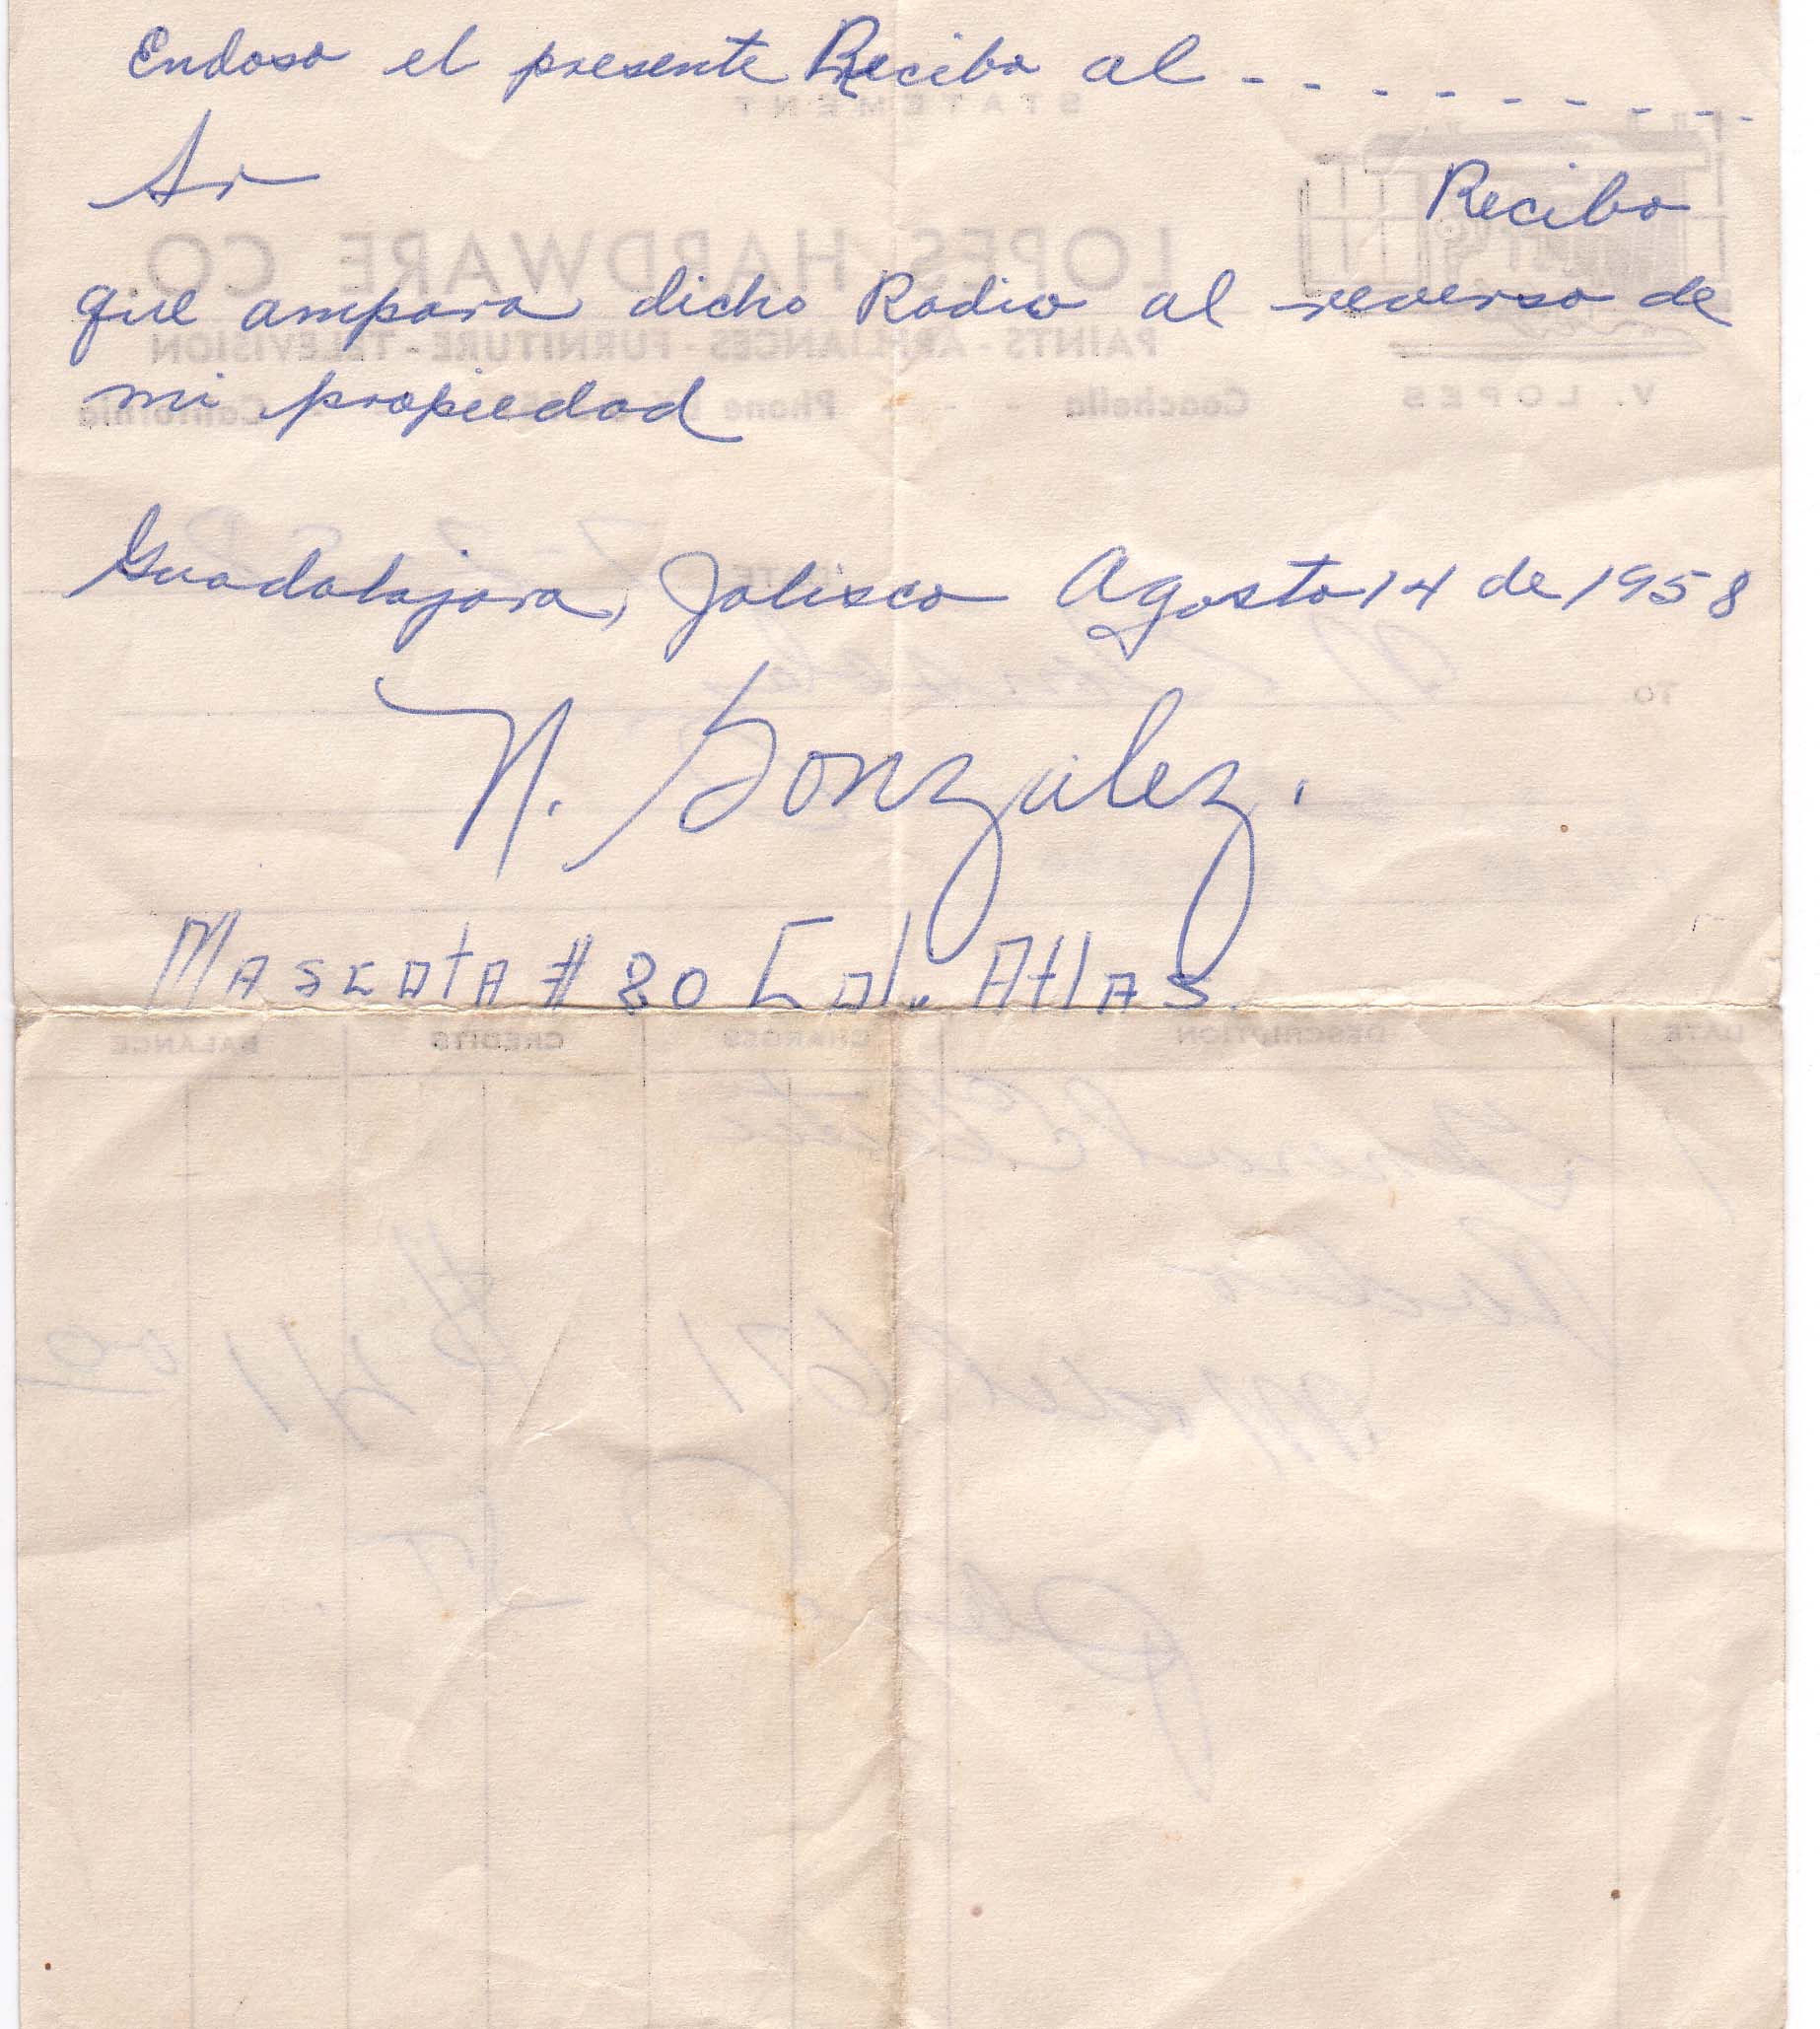 Endoso el presente Recibo al - - - - - - - - -
Sr Recibo
que ampara dicho Radio al reverso de
mi propiedad
Guadalajara, Jalisco Agosto 14 de 1958
N. González.
MASCOTA # 80 Col. Atlas.
STATEMENT
LOPES HARDWARE CO
PAINTS - APPLIANCES - FURNITURE - TELEVISION
V. LOPES
Coachella - - - Phone California
TO
DATE DESCRIPTION CHARGES CREDITS BALANCE
1 General Electric
Radio
Model 671
41 00